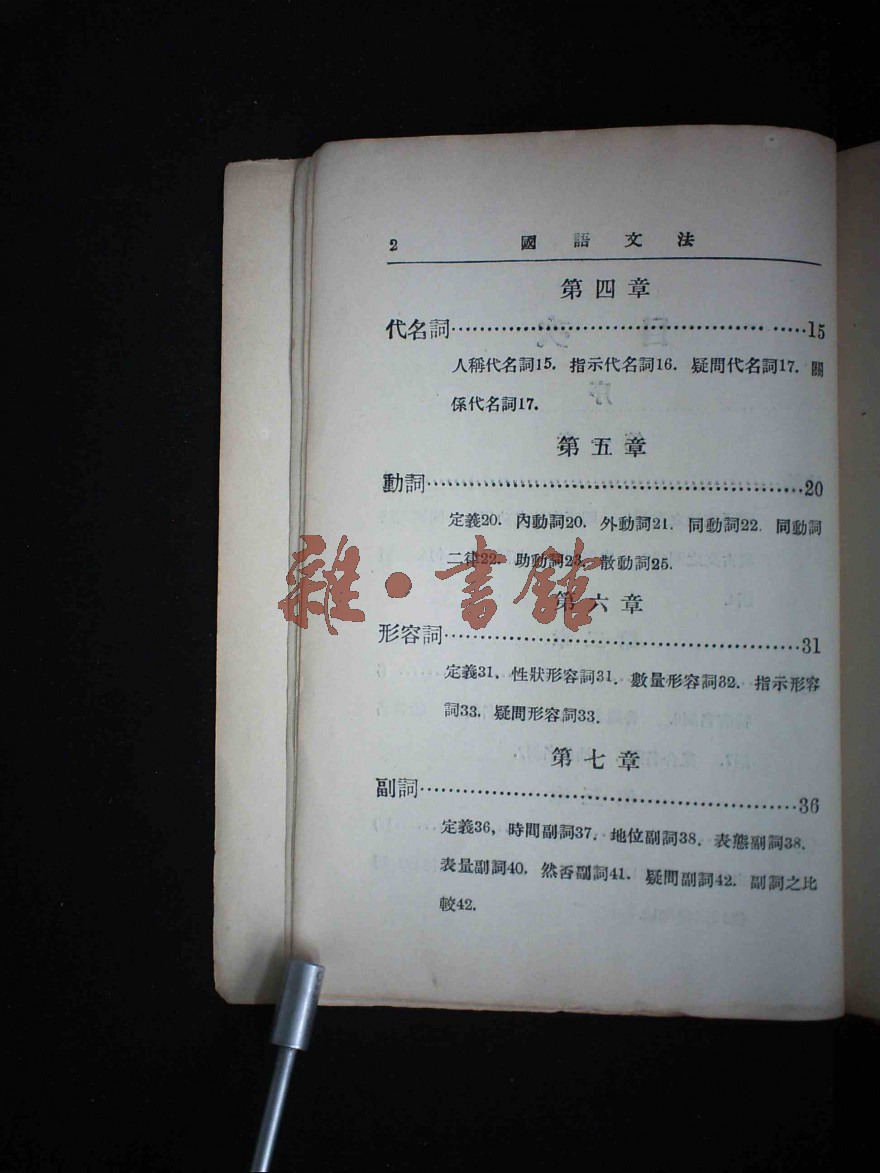 2 國語文法
第四章
代名詞……………………………………………15
人稱代名詞15. 指示代名詞16. 疑問代名詞17. 關
係代名詞17.
第五章
動詞……………………………………………20
定義20. 內動詞20. 外動詞21. 同動詞22. 同動詞
二律22. 助動詞23. 散動詞25.
第六章
形容詞……………………………………………31
定義31. 性狀形容詞31. 數量形容詞32. 指示形容
詞33. 疑問形容詞33.
第七章
副詞……………………………………………36
定義36, 時間副詞37. 地位副詞38. 表態副詞38.
表量副詞40. 然否副詞41. 疑問副詞42. 副詞之比
較42.
雜·書館